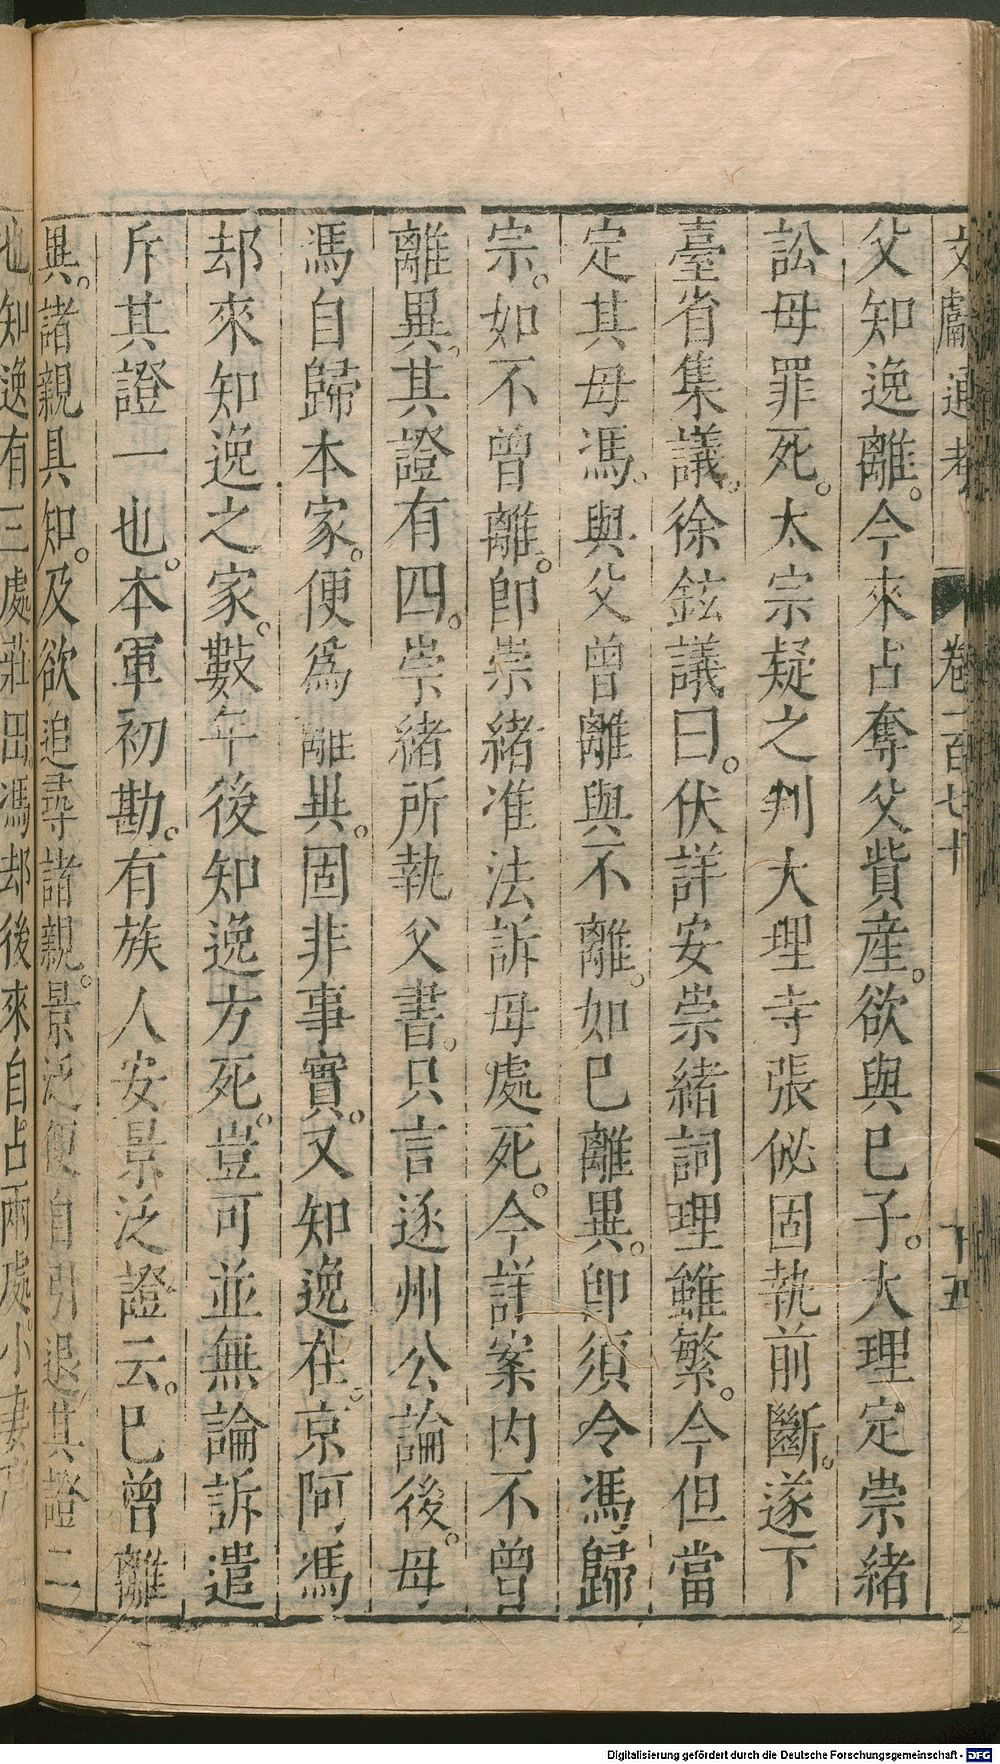 文獻通考 卷一百七十 十五
父知逸離。今來占奪父貲産。欲與己子。大理定崇緒
訟母罪死。太宗疑之判大理寺張佖固執前斷。遂下
臺省集議。徐鉉議曰。伏詳安崇緒詞理雖繁。今但當
定其母馮。與父曾離與不離。如已離異。即須令馮歸
宗。如不曾離。即崇緒准法訴母處死。今詳案内不曾
離異。其證有四。崇緒所執父書。只言遂州公論後。母
馮自歸本家。便爲離異。固非事實。又知逸在。京阿馮
却來知逸之家。數年後知逸方死。豈可並無論訴遣
斥其證一也。本軍初勘。有族人安景泛證云。已曾離
異。諸親具知。及欲追尋諸親。景泛便自引退其證二
也。知逸有三處莊田馮却後來自占兩處。小妻
Digitalisierung gefördert durch die Deutsche Forschungsgemeinschaft - DFG